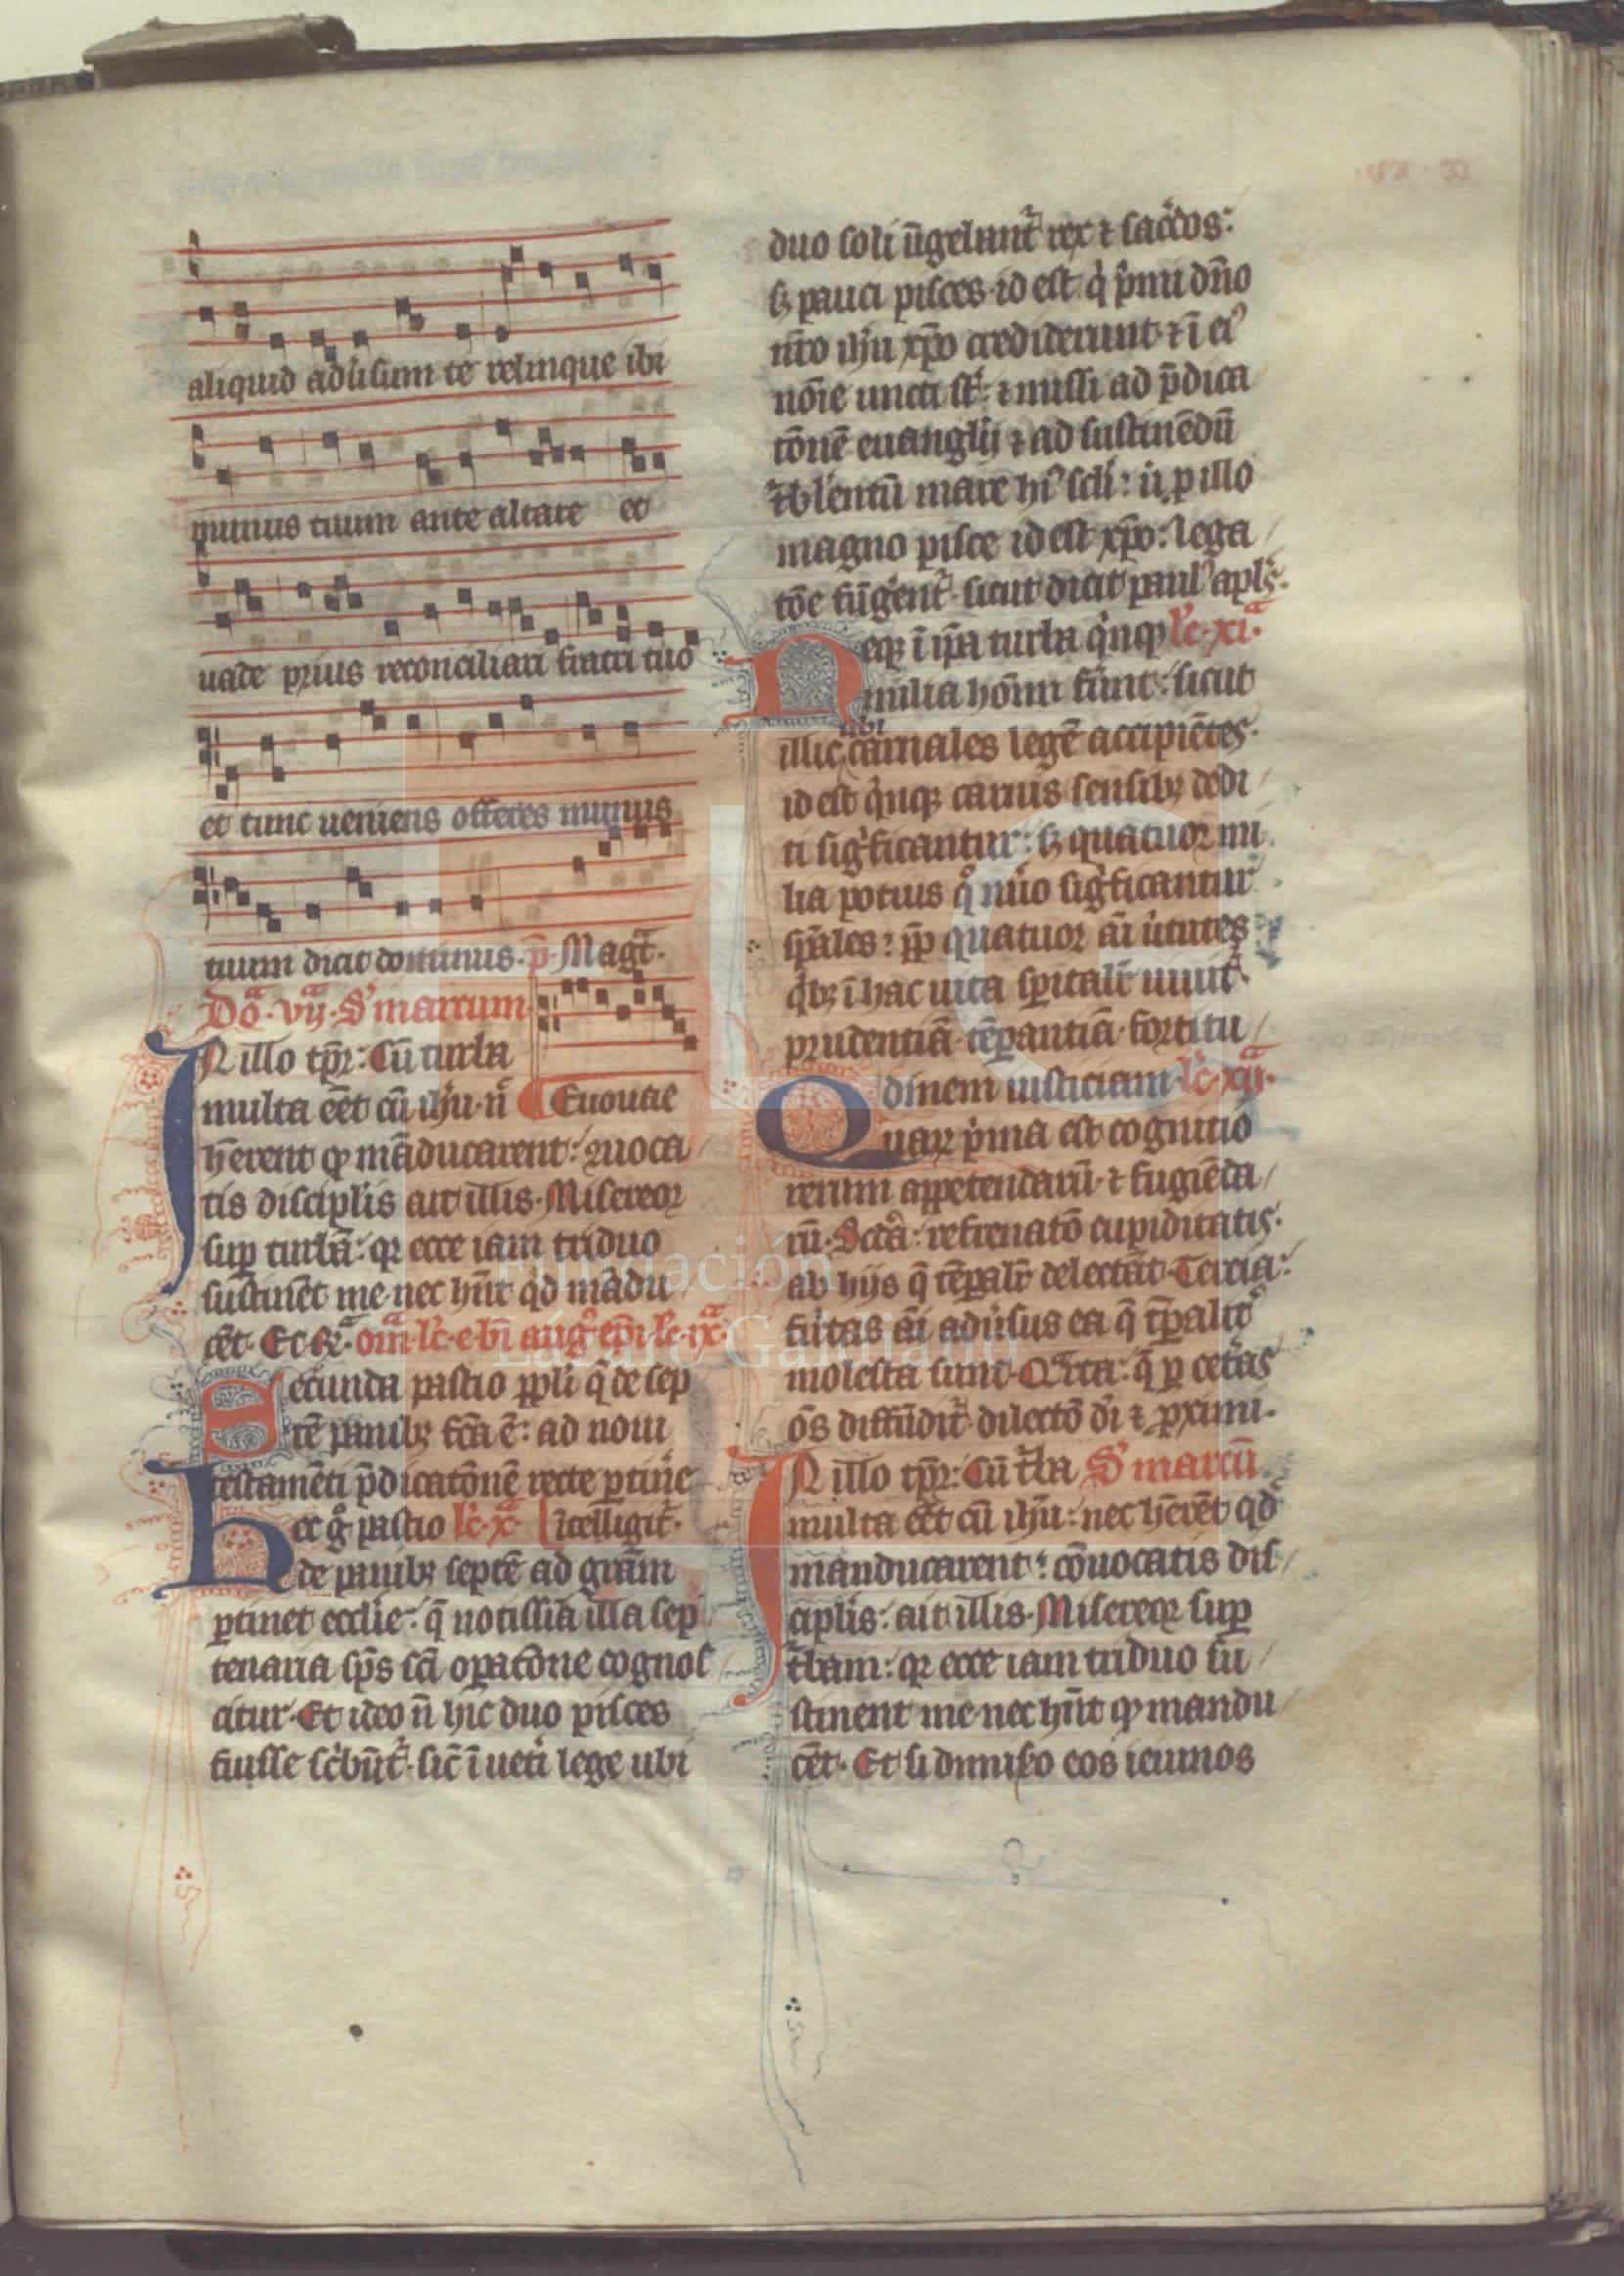 aliquid adu̓sum te relinque ibi
munus tuum ante altare et
uade prius reconciliari fratri tuo
et tunc ueniens offeres munus
tuum dicit dominus. p̄. Magt̄.
Do.ᵃ vij.ᵃ S' marcum
IN illo tp̄r: Cū turba
multa eēt cū ih̄u. n̄ Euouae
h̄erent qͥ māducarent: ꝯuoca
tis disciplis ait illis. Misereor
suꝑ turbā: qꝛ ecce iam triduo
sustinēt me nec hn̄t qd̓ mādu
cēt. Et R̓. om̄. lc̄. e. bī. aug. ep̄i. lc̄. ixᵃ
Secunda pastio ppl̓i q̄ de sep
tē panibꝫ fcā ē: ad noui
testamēti p̄dicatōnē recte ꝑtine
Hec gͦ pastio lc̄. xᵃ ītelligit̓.
de panibꝫ septē ad grām
ꝑtinet eccl̓ie: q̄ notissīa illa sep
tenaria sp̄s sc̄i oꝑatōne cognos
citur. Et ideo n̄ hic duo pisces
fuisse sc̓būt̓. sic̄ ī ueti lege ubi
duo soli ūgebant̓ rex ⁊ sac̓dos:
sꝫ pauci pisces. id est q̓ p̓mi dn̄o
nr̄o ih̄u xp̄o crediderunt. ⁊ ī eiꝰ
noīe uncti st̄: ⁊ missi ad p̄dica
tōnē euanglij ⁊ ad sustinēdū
t̓bl̓entū mare hiꝰ scl̓i: ut ꝑ illo
magno pisce id est xp̄o: lega
tōe fūgent̓. sicut dicit paulꝰ apl̓s.
Neqꝫ ī ip̄a turba q̓nqꝫ lc̄. xiᵃ.
milia hoīm fūnt: sicut
illic ubi carnales legē accipiētes.
id est q̓nqꝫ carnis sensibꝫ dedi
ti sig̓ficantur: sꝫ quatuor mi
lia potius qͦ nūo sig̓ficantur
sp̄ales: ꝓp quatuor aī ut̓utes
qͥbꝫ ī hac uita sp̄italit̓ uiuit̓.
prudentiā. tēꝑantiā. fortitu
dinem iusticiam. lc̄. xijᵃ.
Quaꝝ p̓ma est cognitio
rerum appetendarū. ⁊ fugiēda
rū. Scd̓a: refrenatō cupiditatis.
ab hijs q̄ tēꝑalit̓ delectāt. Tercia:
firmitas aī adu̓sus ea q̄ tꝑalit̓
molesta sunt. Qᵃrta: q̄ ꝑ cet̓as
ōs diffūdit̓. dilectō dī ⁊ ꝓximi.
IN illo tp̄r: Cū t̓ba S' marcū
multa eēt cū ih̄u: nec h̄erēt qd̓
manducarent: cōuocatis dis
ciplis: ait illis. Misereor suꝑ
t̓bam: qꝛ ecce iam triduo su
stinent me nec hn̄t qͥ mandu
cēt. Et si dimisero eos ieiunos
Fundación
Lázaro Galdiano